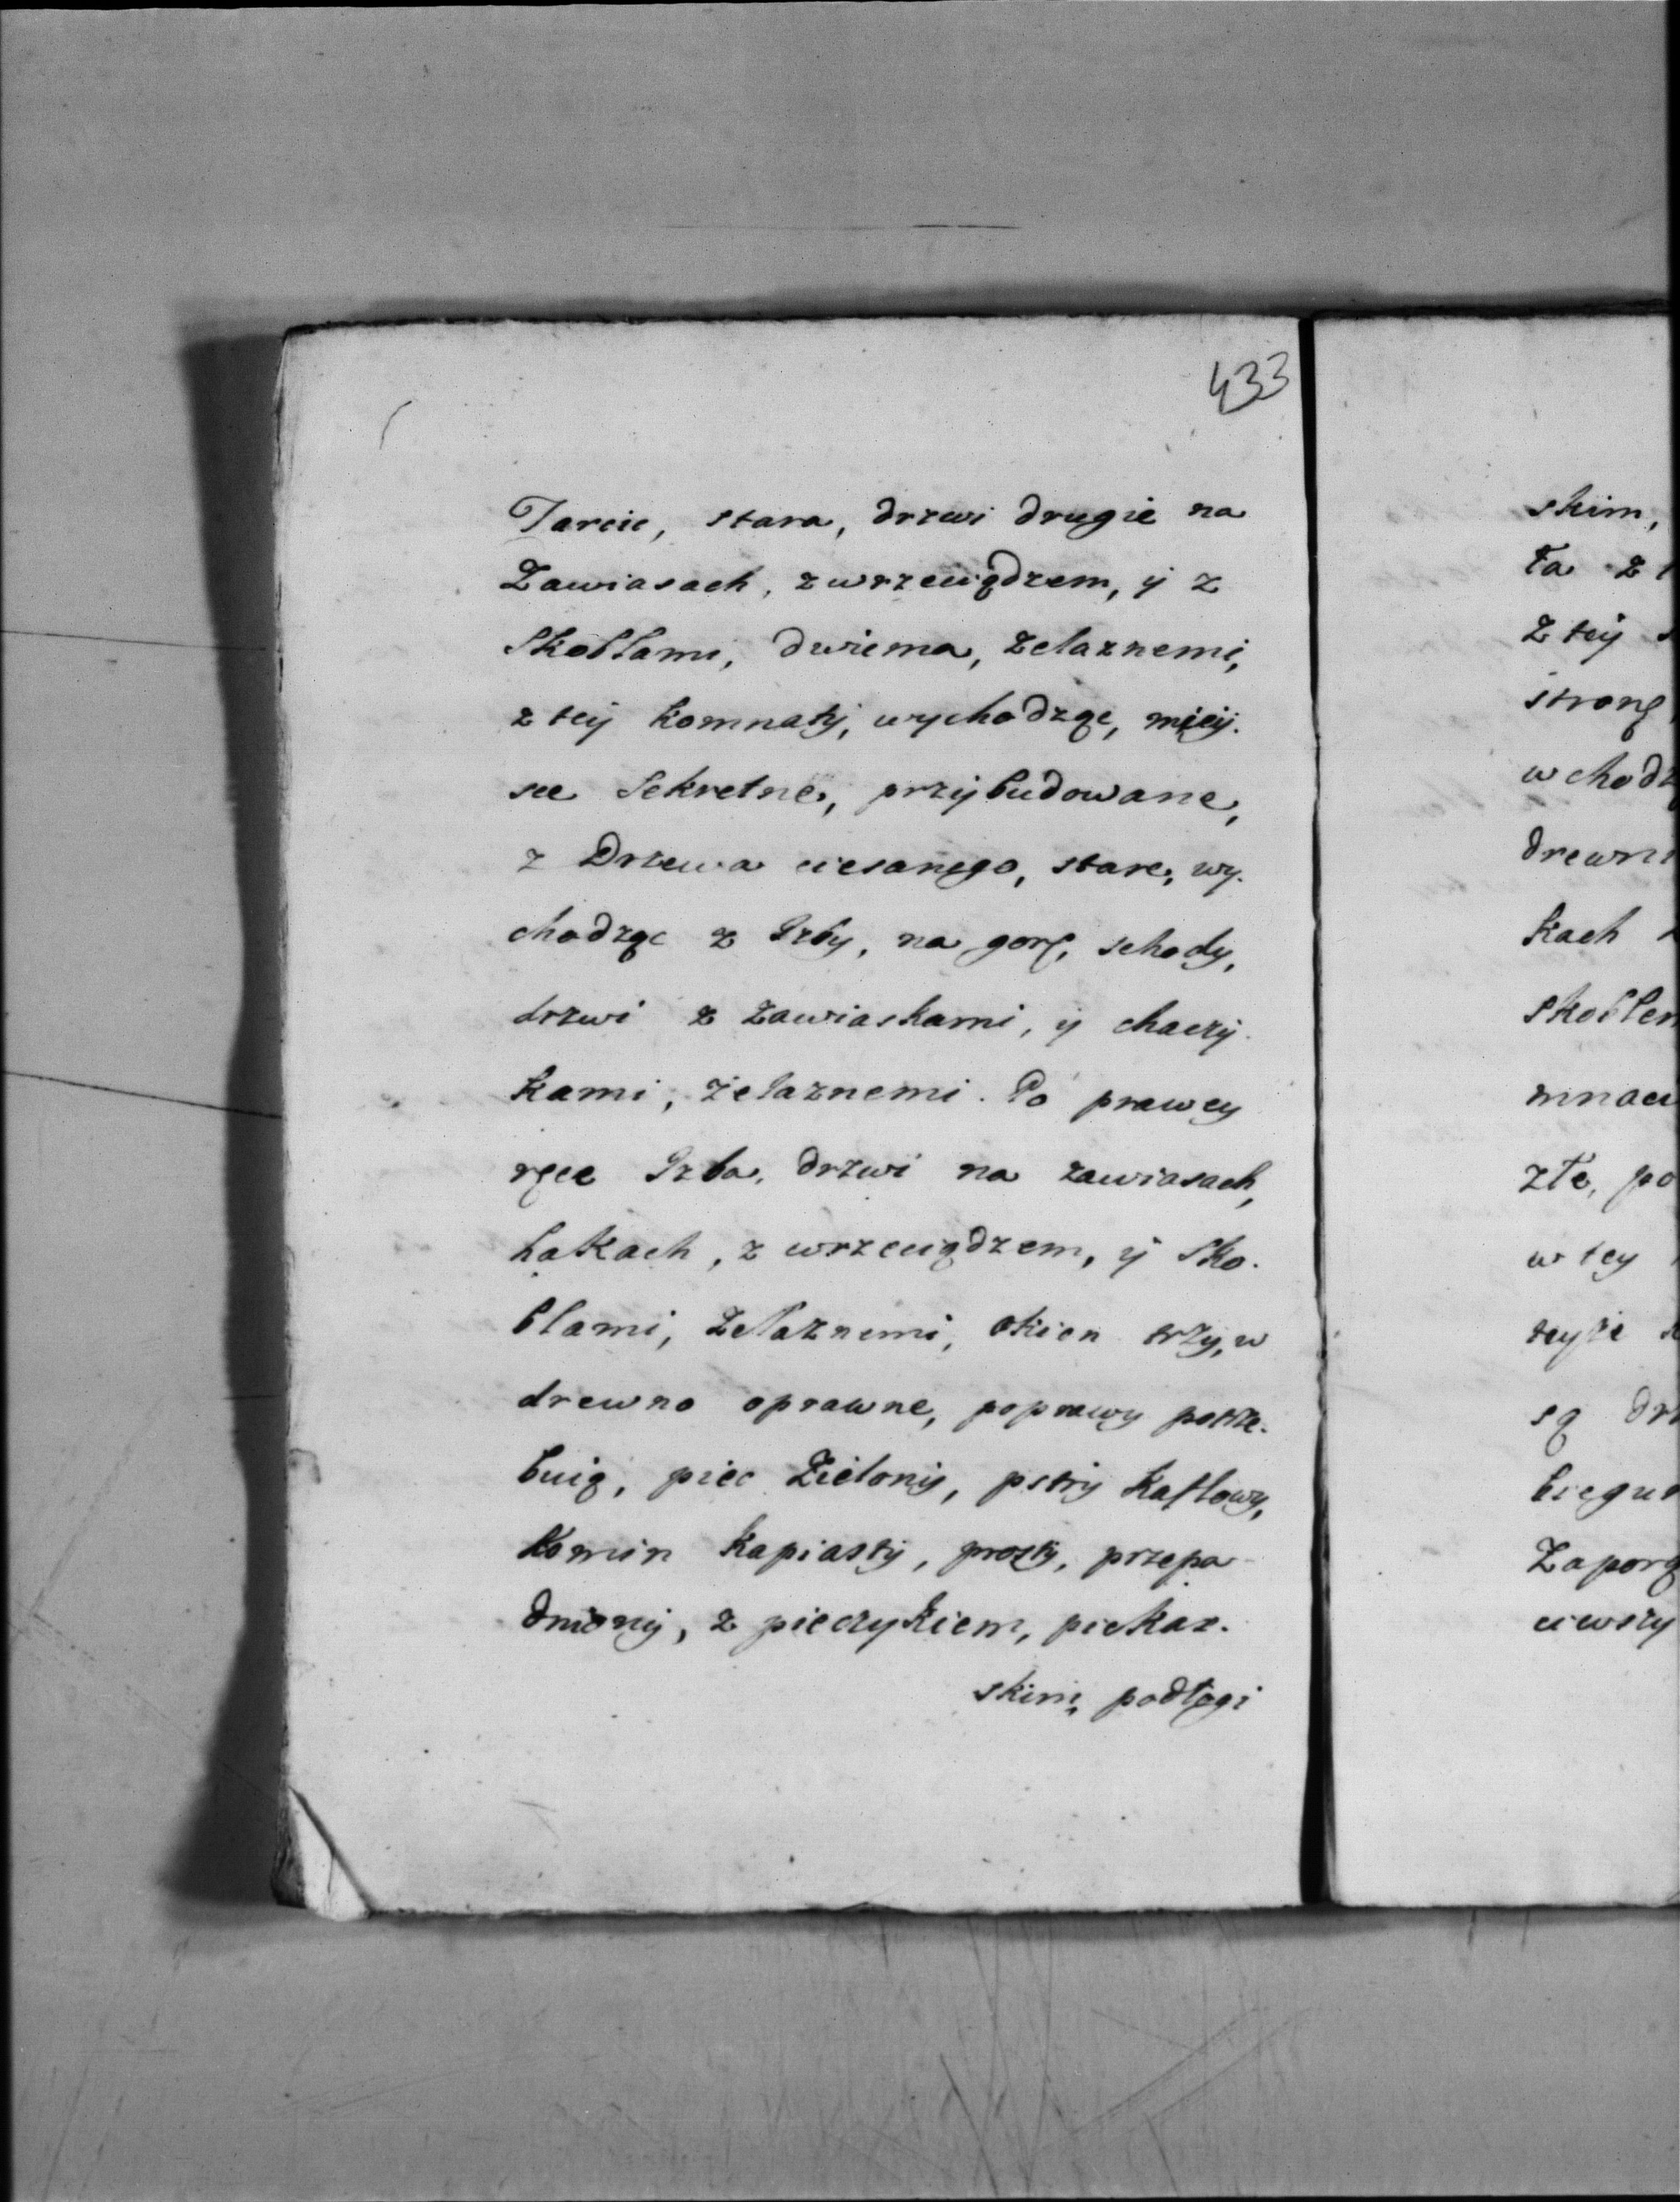 433
Tarcic, stara, drzwi drugie na
Zawiasach, z wrzeciądzem, ÿ z
Skoblami, dwiema, zelaznemi,
z teÿ komnatÿ, wychodząc, mieÿ-
sce Sekretne, przÿbudowane,
z Drzewa ciesanego, stare, wy-
chodząc z Izby, na gorę, schody,
drzwi z zawiaskami, ÿ chaczÿ-
kami, żelaznemi. Po prawey
ręce Izba, drzwi na zawiasach,
hakach, z wrzeciądzem, ÿ Sko-
blami, Zelaznemi, okien trzy, w
drewno oprawne, poprawy potrze-
buią, piec Zielonÿ, pstrÿ Kaflowy,
Komin kapiastÿ, prostÿ, przepa-
dnionÿ, z pieczykiem, piekar-
skim, podłogi
skim,
ła z
z teÿ
stronę
wchodz
drewni
kach
skoblem
mnac
złe, po
w tey
teyże
są drz
biegun
Zaporą
ciwszy